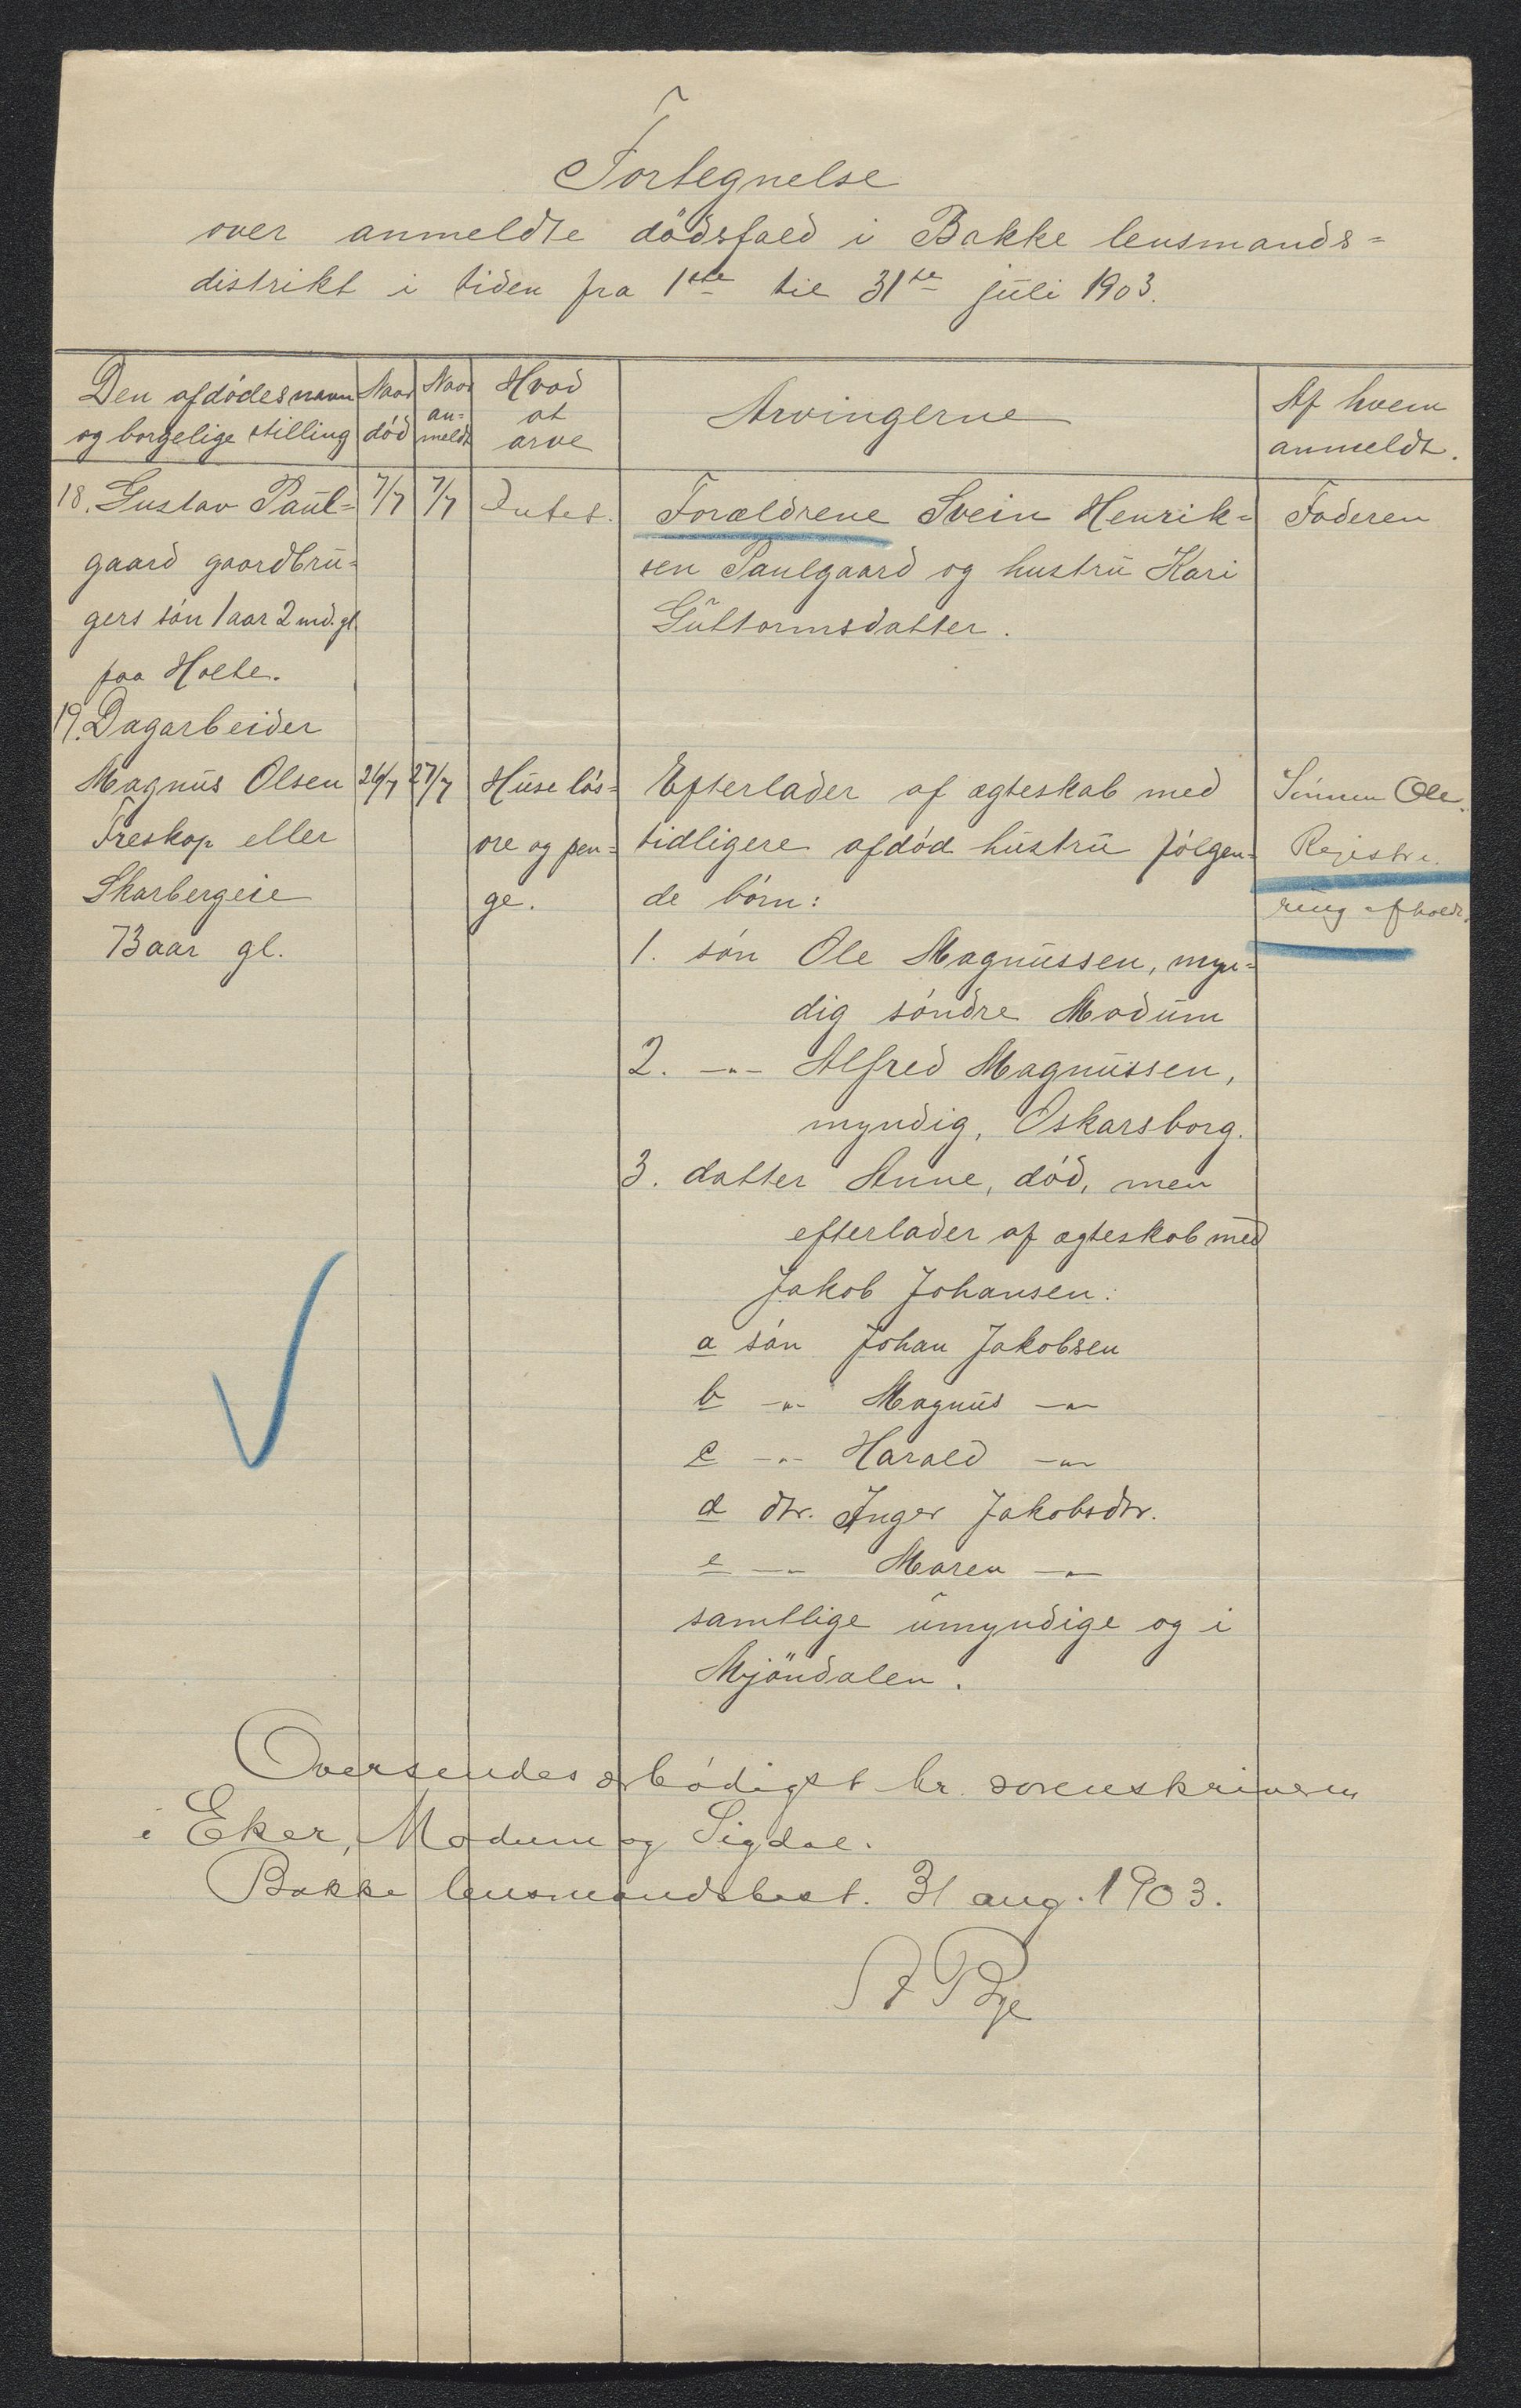 Fortegnelse
over anmeldte dödsfald i Bakke lensmands=
distrikt i tiden fra 1ste til 31te juli 1903.
Den afdødes navn
og borgelige stilling
Naar
død
Naar
an=
meldt
Hvad
at
arve
Arvingerne
Af hvem
anmeldt.
18. Gustav Paul=
gaard gaardbru=
gers søn 1 aar 2 md. gl.
paa Holte.
7/7
7/7
Intet.
Forældrene Svein Henrik=
sen Paulgaard og hustru Kari
Guttormsdatter.
Faderen
19. Dagarbeider
Magnus Olsen
Treskop eller
Skarbergeie
73 aar gl.
26/7
27/7
Huse løs=
øre og pen=
ge.
Efterlader af ægteskab med
tidligere afdød hustru følgen=
de børn:
1. søn Ole Magnussen, myn=
dig søndre Modum
2. -"- Alfred Magnussen,
myndig, Oskarsborg.
3. datter Anne, død, men
efterlader af ægteskab med
Jakob Johansen:
a søn Johan Jakobsen
b -"- Magnus -"-
c -"- Harald -"-
d dtr. Inger Jakobsdtr.
e -"- Maren -"-
samtlige umyndige og i
Mjöndalen.
Sønnen Ole.
Registre=
ring afholdt.
Oversendes ærbødigst hr. sorenskriveren
i Eker, Modum og Sigdal.
Bakke lensmandsbest. 31 aug. 1903.
Bye